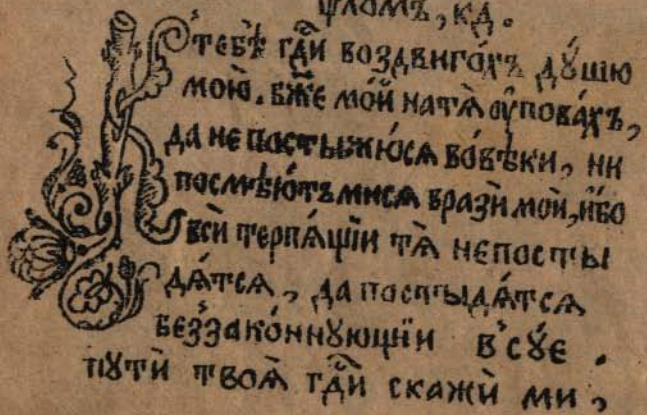 ѱло́мъ, кд.
Къ тебѣ̀ гд҇и воздвиго́хъ дꙋ́шꙋ
мою̀. бж҃е мо́й на тѧ̀ ᲂу҆пова́хъ,
да не постыжю́сѧ во́вѣки, ни
посмѣю́тъмисѧ вразѝ мои̇, и҆́бо
всѝ терпѧ́щїи тѧ̀ непосты
дѧ́тсѧ, да постыдѧ́тсѧ
беззако́ннꙋющїи в̾сꙋ́е.
пꙋтѝ твоѧ̀ гд҇и скажѝ ми,